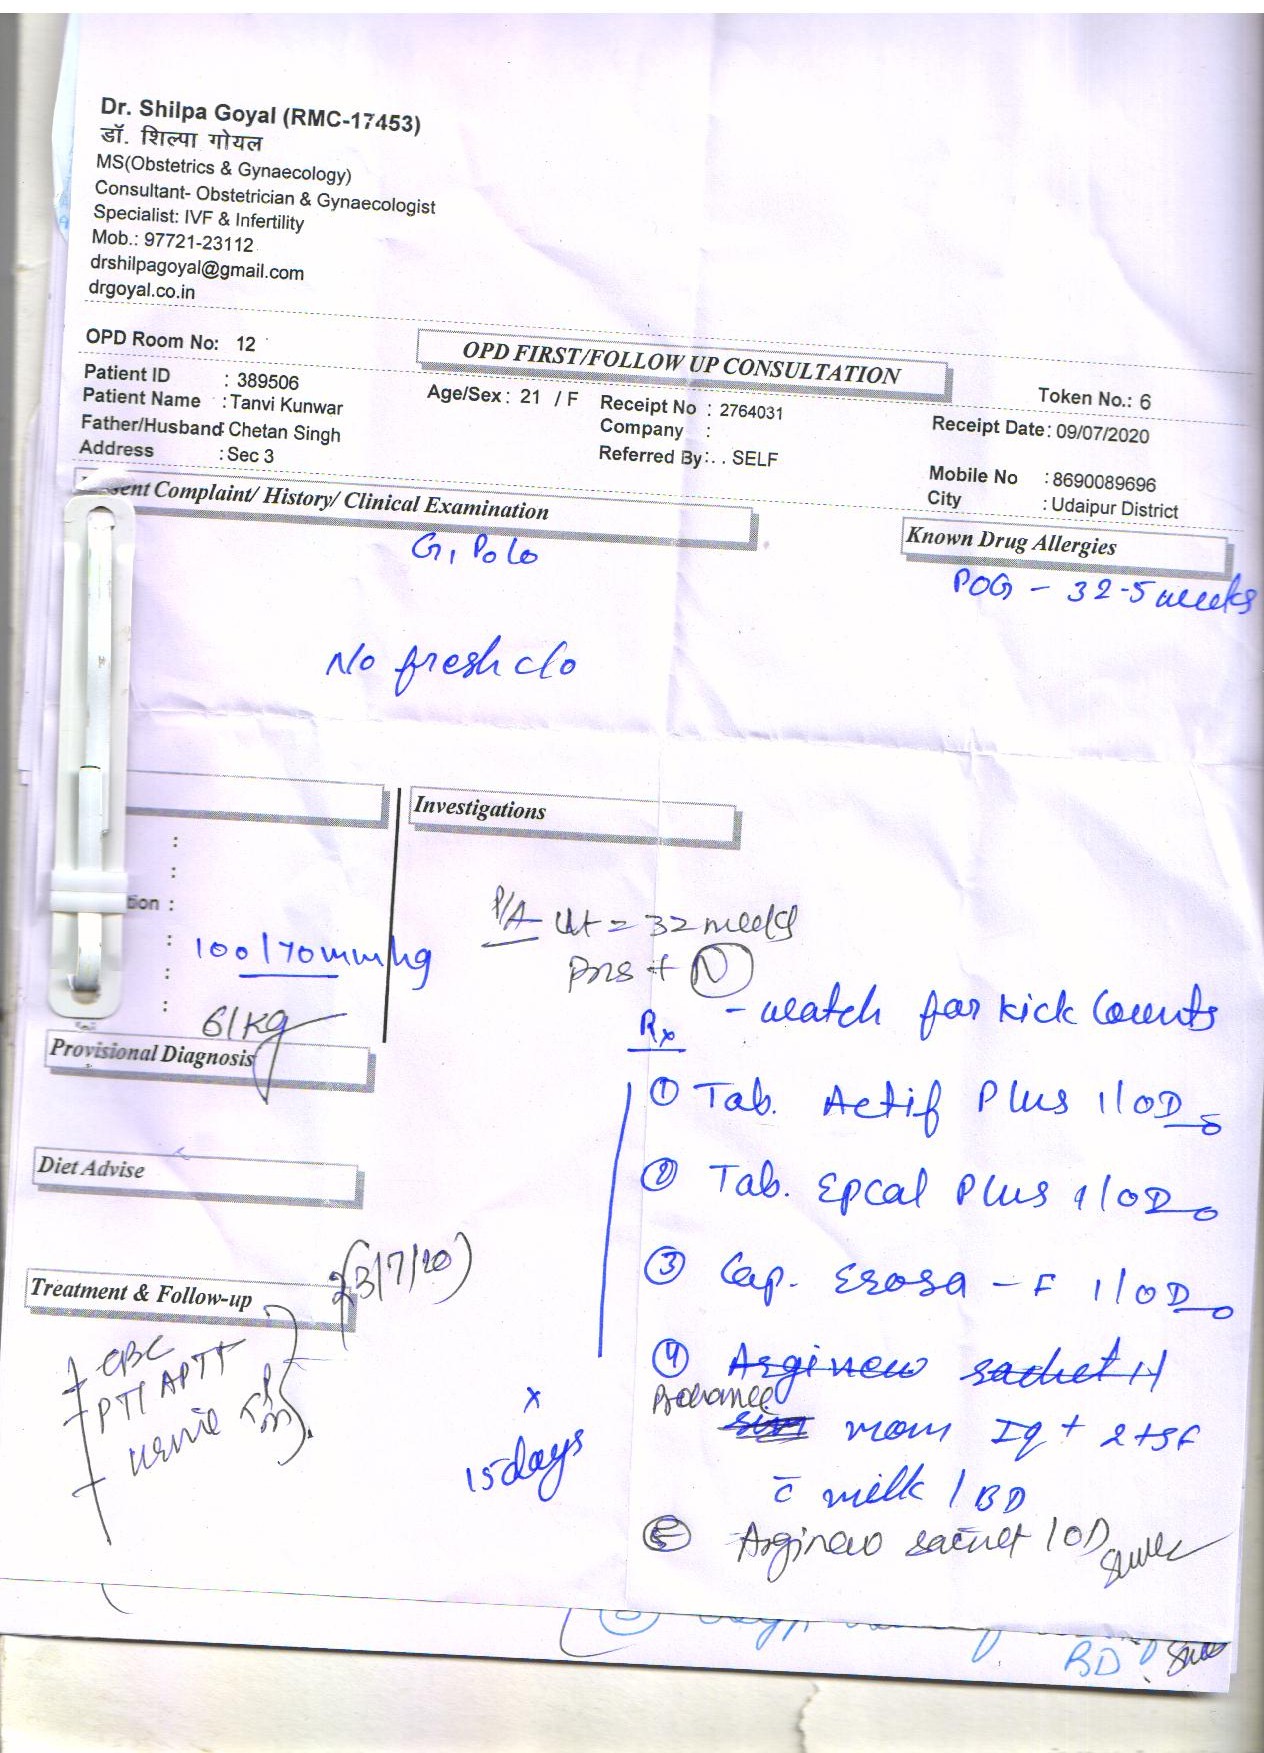 Dr. Shilpa Goyal (RMC-17453)
डॉ. शिल्पा गोयल
MS(Obstetrics & Gynaecology)
Consultant- Obstetrician & Gynaecologist
Specialist: IVF & Infertility
Mob.: 97721-23112
drshilpagoyal@gmail.com
drgoyal.co.in
OPD Room No: 12
OPD FIRST/FOLLOW UP CONSULTATION
Token No.: 6
Patient ID : 389506
Patient Name : Tanvi Kunwar
Father/Husband : Chetan Singh
Address : Sec 3
Age/Sex : 21 / F
Receipt No : 2764031
Company :
Referred By : . . SELF
Receipt Date : 09/07/2020
Mobile No : 8690089696
City : Udaipur District
Complaint/ History/ Clinical Examination
Known Drug Allergies
G1 P0 L0
POG - 32-5 weeks
No fresh c/o
Investigations
tion :
100/70mmhg
61kg
P/A Ut = 32 weeks
N
Provisional Diagnosis
Diet Advise
Treatment & Follow-up
CBC
PT/APTT
(23/7/20)
x
15days
Rx
- watch for kick counts
① Tab. Actif Plus 1 OD
② Tab. Epcal Plus 1 OD
③ Cap. Esosa - F 1 OD
④ Arginew sachet
mom Iq + 2tsf
c̄ milk / BD
⑤ Arginew sachet 1 OD
BD